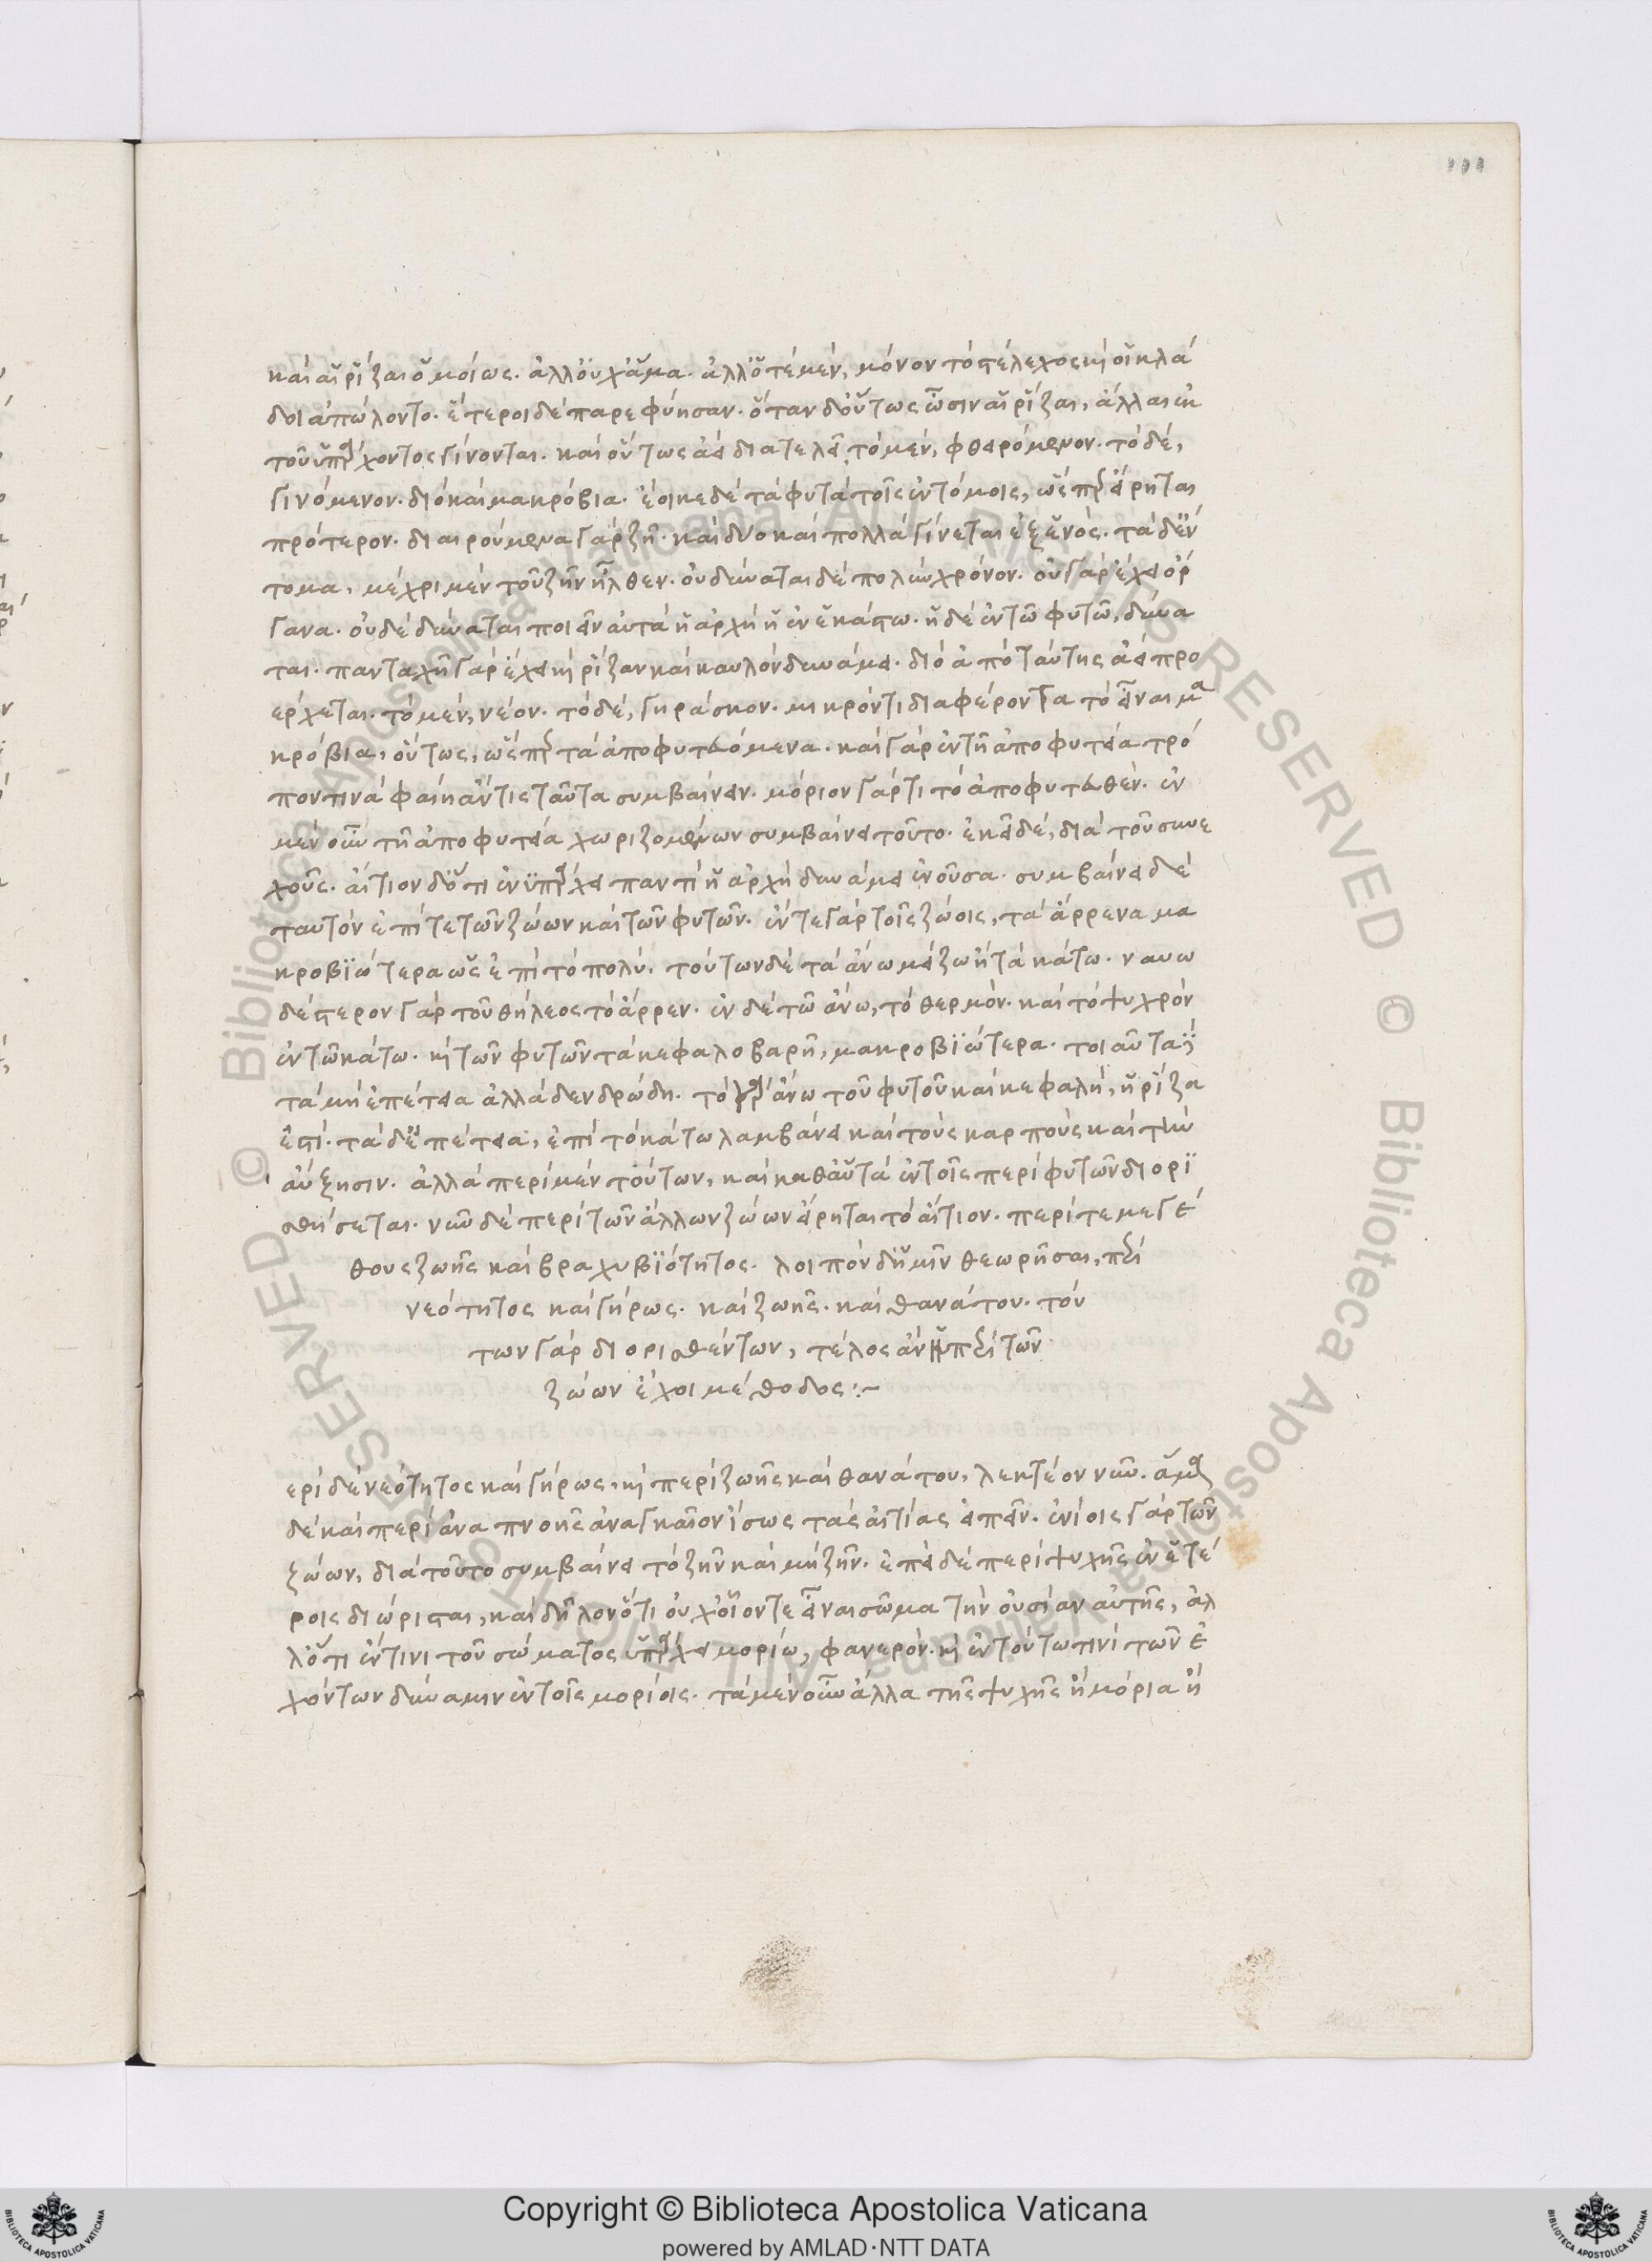 111
καὶ αἱ ῥίζαι ὁμοίως. ἀλλ' οὐχ ἅμα. ἀλλ' ὁτὲ μὲν, μόνον τὸ στέλεχος καὶ οἱ κλά
δοι ἀπώλοντο. ἕτεροι δὲ παρεφύησαν. ὅταν δ' οὕτως ὦσιν αἱ ῥίζαι, ἄλλαι ἐκ
τοῦ ὑπάρχοντος γίνονται. καὶ οὕτως ἀεὶ διατελεῖ τὸ μὲν, φθειρόμενον. τὸ δὲ,
γινόμενον. διὸ καὶ μακρόβια. ἔοικε δὲ τὰ φυτὰ τοῖς ἐντόμοις, ὥσπερ εἴρηται
πρότερον. διαιρούμενα γὰρ ζῆ. καὶ δύο καὶ πολλὰ γίνεται ἐξ ἑνός. τὰ δ' ἔν
τομα, μέχρι μὲν τοῦ ζῆν ἦλθεν. οὐ δύναται δὲ πολὺν χρόνον. οὐ γὰρ ἔχει ὄρ
γανα. οὐδὲ δύναται ποιεῖν αὐτὰ ἡ ἀρχὴ ἡ ἐν ἑκάστω. ἡ δὲ ἐν τῶ φυτῶ, δύνα
ται. πανταχῆ γὰρ ἔχει καὶ ῥίζαν καὶ καυλὸν δυνάμει. διὸ ἀπὸ ταύτης ἀεὶ προ
έρχεται. τὸ μὲν, νέον. τὸ δὲ, γηράσκον. μικρόν τι διαφέροντα τὸ εἶναι μα
κρόβια, οὕτως, ὥσπερ τὰ ἀποφυτευόμενα. καὶ γὰρ ἐν τῆ ἀποφυτεία τρό
πον τινὰ φαίη ἄν τις ταῦτα συμβαίνειν. μόριον γάρ τι τὸ ἀποφυτευθέν. ἐν
μὲν οὖν τῆ ἀποφυτεία χωριζομένων συμβαίνει τοῦτο. ἐκεῖ δὲ, διὰ τοῦ συνε
χοῦς. αἴτιον δ' ὅτι ἐνυπάρχει παντὶ ἡ ἀρχὴ δυνάμει ἐνοῦσα. συμβαίνει δὲ
ταυτὸν ἐπί τε τῶν ζώων καὶ τῶν φυτῶν. ἔν τε γὰρ τοῖς ζώοις, τὰ ἄρρενα μα
κροβιώτερα ὡς ἐπὶ τὸ πολύ. τούτων δὲ τὰ ἄνω μείζω ἢ τὰ κάτω. νανω
δέστερον γὰρ τοῦ θήλεος τὸ ἄρρεν. ἐν δὲ τῶ ἄνω, τὸ θερμόν. καὶ τὸ ψυχρὸν
ἐν τῶ κάτω. καὶ τῶν φυτῶν τὰ κεφαλοβαρῆ, μακροβιώτερα. τοιαῦτα δὲ
τὰ μὴ ἐπέτεια ἀλλὰ δενδρώδη. τὸ γὰρ ἄνω τοῦ φυτοῦ καὶ κεφαλὴ, ἡ ῥίζα
ἐστί. τὰ δ' ἐπέτεια, ἐπὶ τὸ κάτω λαμβάνει καὶ τοὺς καρποὺς καὶ τὴν
αὔξησιν. ἀλλὰ περὶ μὲν τούτων, καὶ καθ' αὑτὰ ἐν τοῖς περὶ φυτῶν διορι
σθήσεται. νῦν δὲ περὶ τῶν ἄλλων ζώων εἴρηται τὸ αἴτιον. περί τε μεγέ
θους ζωῆς καὶ βραχυβιότητος. λοιπὸν δ' ἡμῖν θεωρῆσαι, περὶ
νεότητος καὶ γήρως. καὶ ζωῆς. καὶ θανάτου. τού
των γὰρ διορισθέντων, τέλος ἂν ἡ περὶ τῶν
ζώων ἔχοι μέθοδος:~
ερὶ δὲ νεότητος καὶ γήρως, καὶ περὶ ζωῆς καὶ θανάτου, λεκτέον νῦν. ἅμα
δὲ καὶ περὶ ἀναπνοῆς ἀναγκαῖον ἴσως τὰς αἰτίας εἰπεῖν. ἐνίοις γὰρ τῶν
ζώων, διὰ τοῦτο συμβαίνει τὸ ζῆν καὶ μὴ ζῆν. ἐπεὶ δὲ περὶ ψυχῆς ἐν ἑτέ
ροις διώρισται, καὶ δῆλον ὅτι οὐχ οἷόν τε εἶναι σῶμα τὴν οὐσίαν αὐτῆς, ἀλ
λ' ὅτι ἔν τινι τοῦ σώματος ὑπάρχει μορίω, φανερόν. καὶ ἐν τούτω τινὶ τῶν ἐ
χόντων δύναμιν ἐν τοῖς μορίοις. τὰ μὲν οὖν ἄλλα τῆς ψυχῆς ἢ μόρια ἢ
Copyright © Biblioteca Apostolica Vaticana
powered by AMLAD·NTT DATA